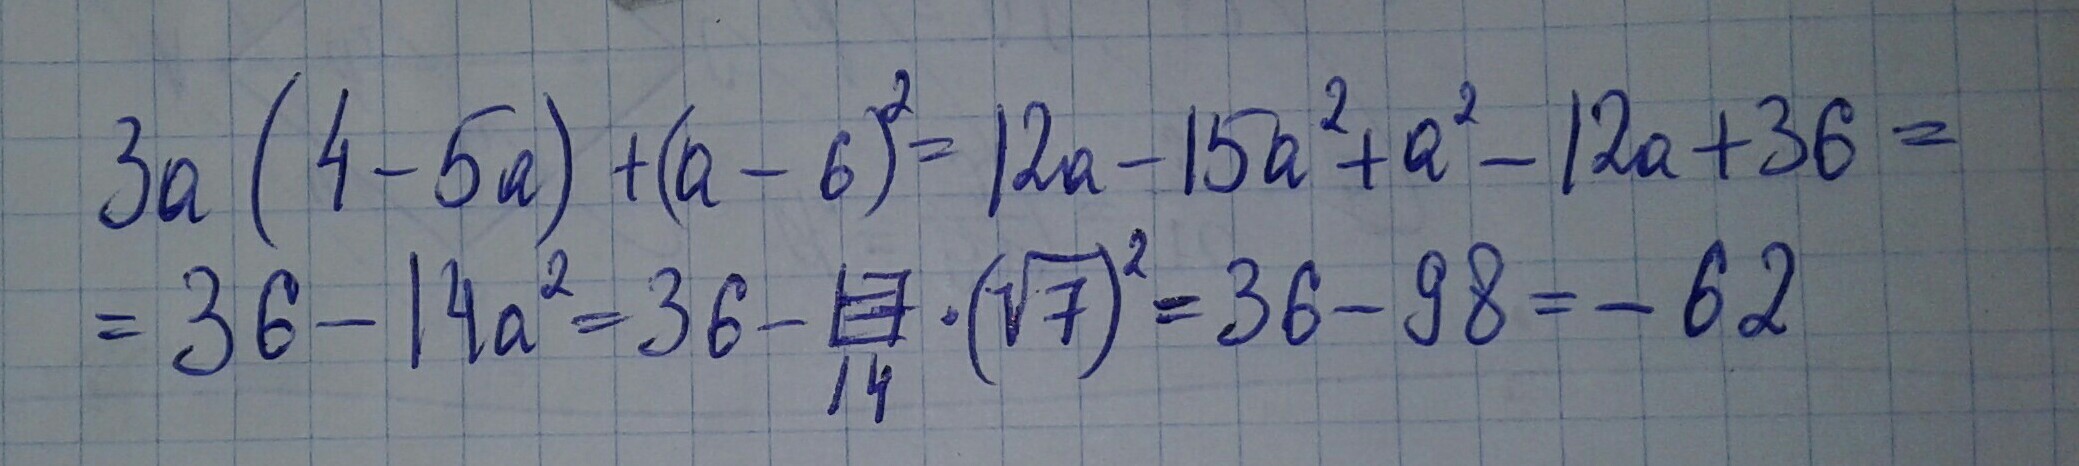 3a (4 - 5a) + (a - 6)² = 12a - 15a² + a² - 12a + 36 =
= 36 - 14a² = 36 - 14 · (√7)² = 36 - 98 = - 62